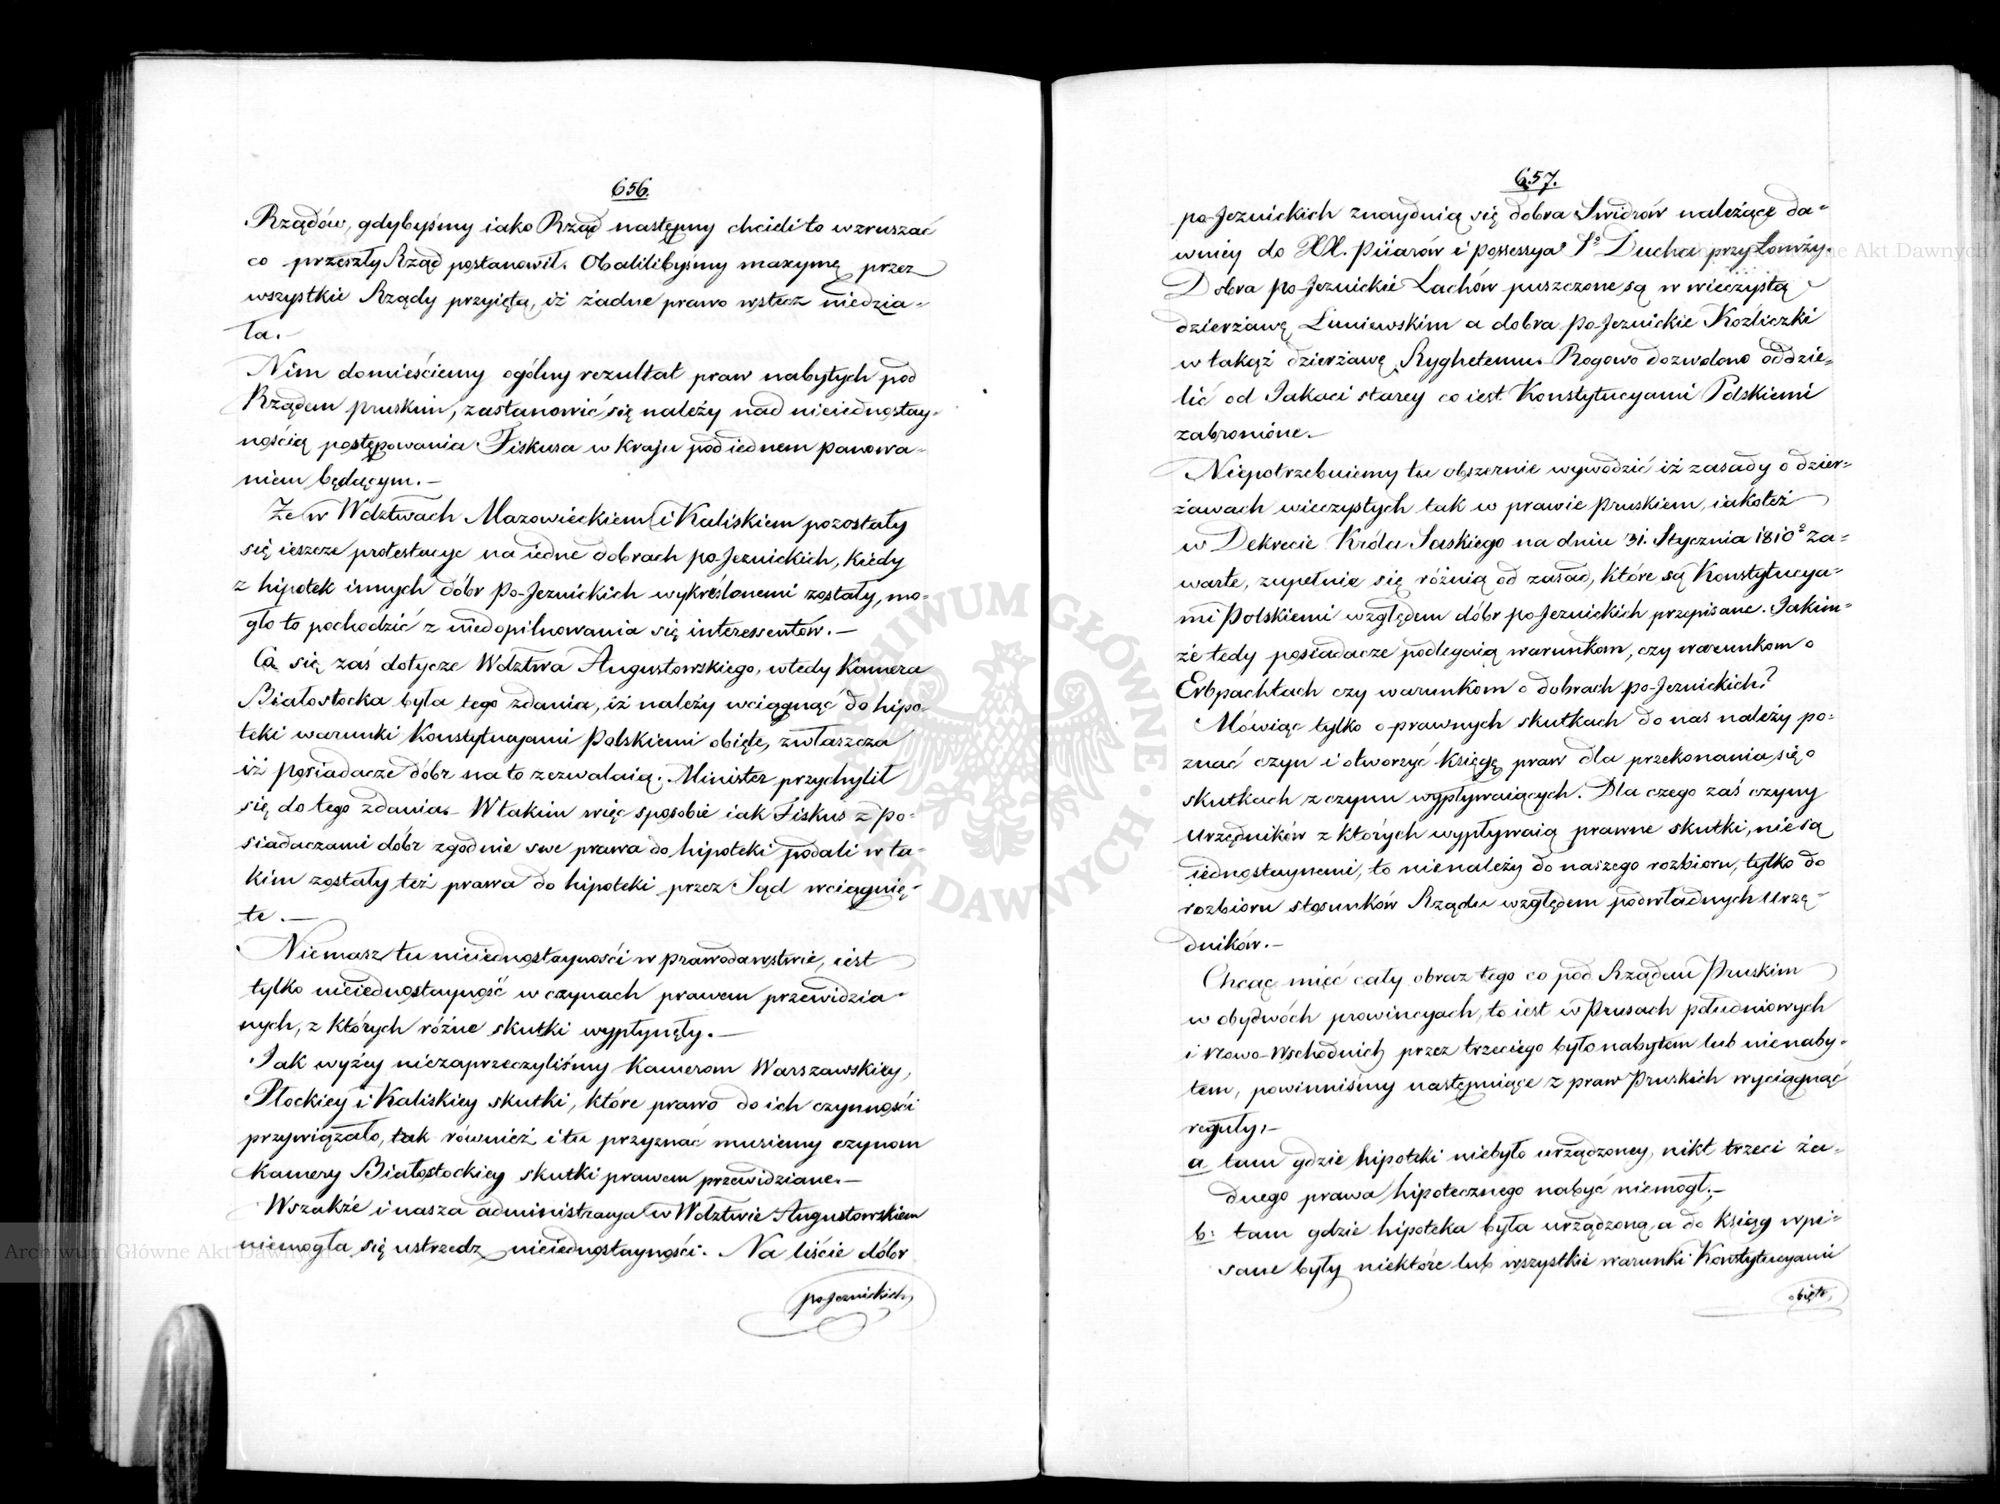 656.
Rządów, gdybyśmy iako Rząd następny chcieli to wzruszać
co przeszły Rząd postanowił. Obalilibyśmy maxymę przez
wszystkie Rządy przyiętą, iż żadne prawo wstecz niedzia-
ła.—
Nim domieściemy ogólny rezultat praw nabytych pod
Rządem pruskim, zastanowić się należy nad nieiednostay-
nością postępowania Fiskusa w kraju pod iednem panowa-
niem będącym.—
Że w Wdztwach Mazowieckiem i Kaliskiem pozostały
się ieszcze protestacye na iedne dobrach po-Jeznickich, kiedy
z hipotek innych dóbr po-Jeznickich wykreślonemi zostały, mo-
gło to pochodzić z niedopilnowania się interessentów.—
Co się zaś dotycze Wdztwa Augustowskiego, wtedy Kamera
Białostocka była tego zdania, iż należy wciągnąć do hipo-
teki warunki Konstytucyami Polskiemi obięte, zwłaszcza
iż posiadacze dóbr na to zezwalaią. Minister przychylił
się do tego zdania. W takim więc sposobie iak Fiskus z po-
siadaczami dóbr zgodnie swe prawa do hipoteki podali w ta-
kim zostały też prawa do hipoteki przez Sąd wciągnię-
te.—
Niemasz tu nieiednostayności w prawodawstwie, iest
tylko nieiednostayność w czynach prawem przewidzia-
nych, z których różne skutki wypłynęły.—
Jak wyżey niezaprzeczyliśmy Kamerom Warszawskiey,
Płockiey i Kaliskiey skutki, które prawo do ich czynności
przywiązało, tak również i tu przyznać musiemy czynom
Kamery Białostockiey skutki prawem przewidziane.—
Wszakże i nasza administracya w Wdztwie Augustowskiem
niemogła się ustrzedz nieiednostayności. Na liście dóbr
po-Jeznickich,
657.
po-Jeznickich znayduią się dobra Swidrów należące da-
wniey do XX. Piiarów i possessya Sgo Ducha przy Łomży.
Dobra po-Jeznickie Lachów puszczone są w wieczystą
dzierżawę Luniewskim a dobra po-Jeznickie Koźliczki
w takąż dzierżawę Ryghetemu. Rogowo dozwolono oddzie-
lić od Jakaci starey co iest Konstytucyami Polskiemi
zabronione.—
Niepotrzebuiemy tu obszernie wywodzić iż zasady o dzier-
żawach wieczystych tak w prawie pruskiem, iakoteż
w Dekrecie Króla Saskiego na dniu 31. Stycznia 1810º za-
warte, zupełnie się różnią od zasad, które są Konstytucya-
mi Polskiemi względem dóbr po-Jeznickich przepisane. Jakim-
że tedy posiadacze podlegaią warunkom, czy warunkom o
Erbpachtach czy warunkom o dobrach po-Jeznickich?
Mówiąc tylko o prawnych skutkach do nas należy po-
znać czyn i otworzyć księgę praw dla przekonania się o
skutkach z czynu wypływaiących. Dla czego zaś czyny
Urzędników z których wypływaią prawne skutki, nie są
iednostaynemi, to nienależy do naszego rozbioru, tylko do
rozbioru stosunków Rządu względem podwładnych Urzę-
dników.—
Chcąc mieć cały obraz tego co pod Rządem Pruskim
w obydwóch prowincyach, to iest w Prusach południowych
i Nowo-Wschodnich przez trzeciego było nabytem lub nienaby-
tem, powinniśmy następuiące z praw Pruskich wyciągnąć
reguły,—
a tam gdzie hipoteki niebyło urządzoney, nikt trzeci ża-
dnego prawa hipotecznego nabyć niemógł.—
b: tam gdzie hipoteka była urządzoną, a do ksiąg wpi-
sane były niektóre lub wszystkie warunki Konstytucyami
obięte,
ARCHIWUM GŁÓWNE AKT DAWNYCH
Archiwum Główne Akt Dawnych
Archiwum Główne Akt Dawnych